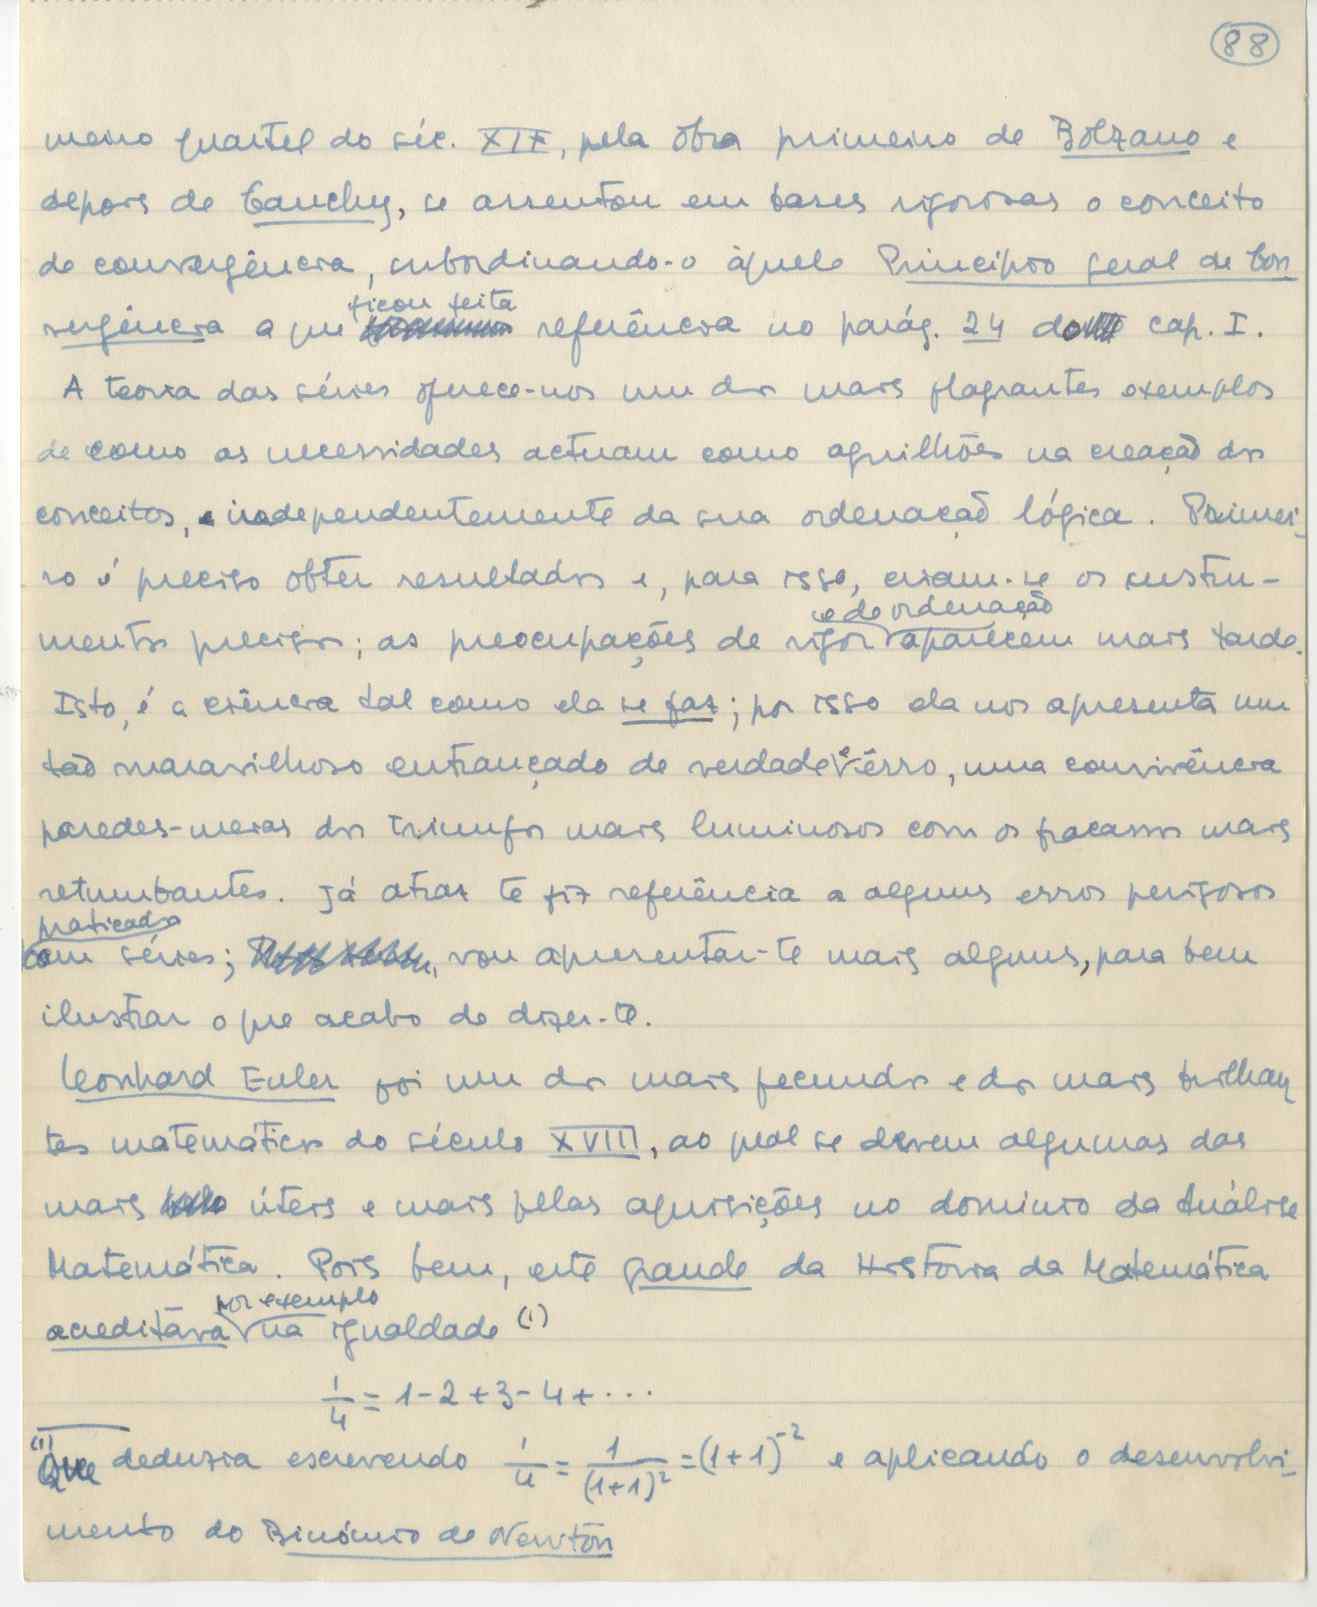 88
meiro quartel do séc. XIX, pela obra primeiro de Bolzano e
depois de Cauchy, se assentou em bases rigorosas o conceito
de convergência, subordinando-o àquele Princípio geral de Con
ficou feita
vergência a que referência no parág. 24 do cap. I.
A teoria das séries oferece-nos um dos mais flagrantes exemplos
de como as necessidades actuam como aguilhões na creação dos
conceitos, e independentemente da sua ordenação lógica. Primei-
ro é preciso obter resultados e, para isso, criam-se os instru-
e de ordenação
mentos precisos; as preocupações de rigor aparecem mais tarde.
Isto, é a ciência tal como ela se faz; por isso ela nos apresenta um
tão maravilhoso entrançado de verdade e êrro, uma convivência
paredes-meias dos triunfos mais luminosos com os fracassos mais
retumbantes. Já atraz te fiz referência a alguns erros perigosos
praticados
com séries; vou apresentar-te mais alguns, para bem
ilustrar o que acabo de dizer-te.
Leonhard Euler foi um dos mais fecundos e dos mais brilhan
tes matemáticos do século XVIII, ao qual se devem algumas das
mais úteis e mais belas aquisições no domínio da Análise
Matemática. Pois bem, este grande da História da Matemática
por exemplo
acreditava na igualdade (1)
1/4 = 1-2+3-4+...
(1) Que deduzia escrevendo 1/4 = 1/(1+1)² = (1+1)⁻² e aplicando o desenvolvi-
mento do Binómio de Newton